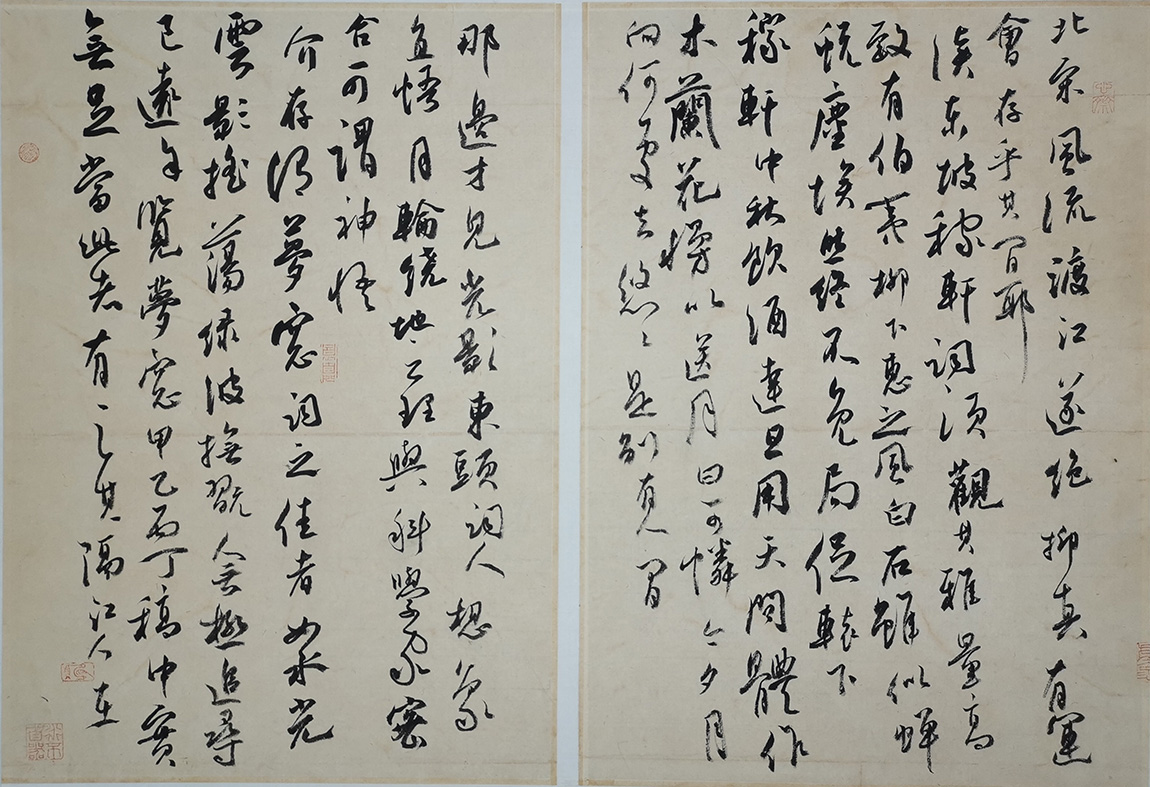 北宋風流渡江遂絕抑真有運
會存乎其間耶
讀東坡稼軒詞須觀其雅量高
致有伯夷柳下惠之風白石雖似蟬
蛻塵埃然終不免局促轅下
稼軒中秋飲酒達旦用天問體作
木蘭花慢以送月曰可憐今夕月
向何處去悠〻是別有人間
那邊才見光影東頭詞人想象
直悟月輪繞地之理與科學家密
合可謂神悟
介存謂夢窗詞之佳者如水光
雲影搖蕩綠波撫翫無極追尋
已遠余覽夢窗甲乙丙丁稿中實
無足當此者有〻之其隔江人在